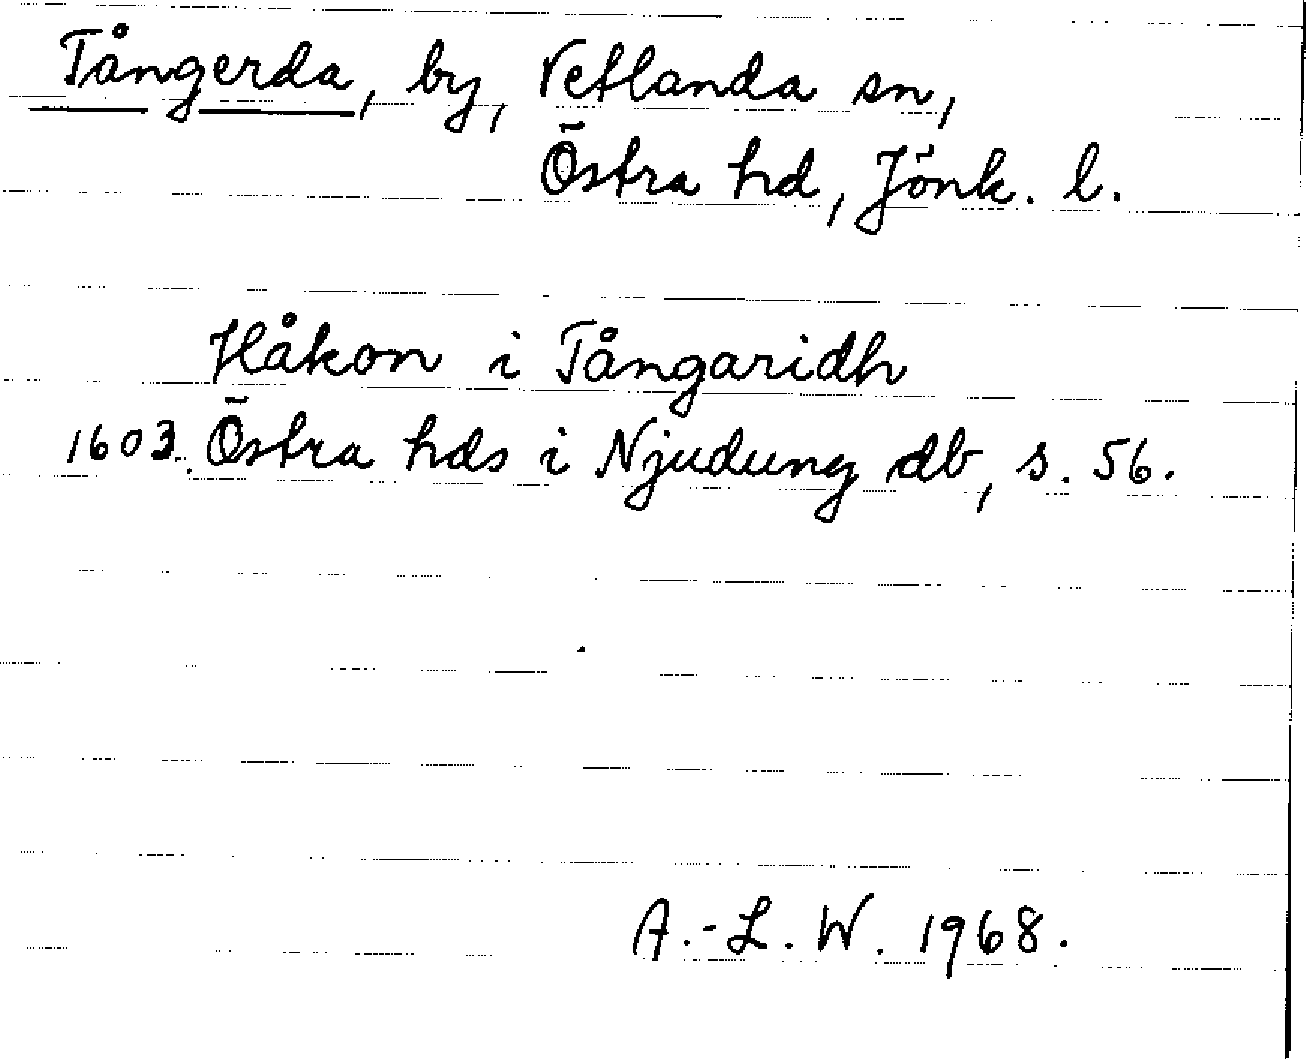 Tångerda, by, Vetlanda sn,
Östra hd, Jönk. l.
Håkon i Tångaridh
1603. Östra hds i Njudung db, s. 56.
A.-L. W. 1968.